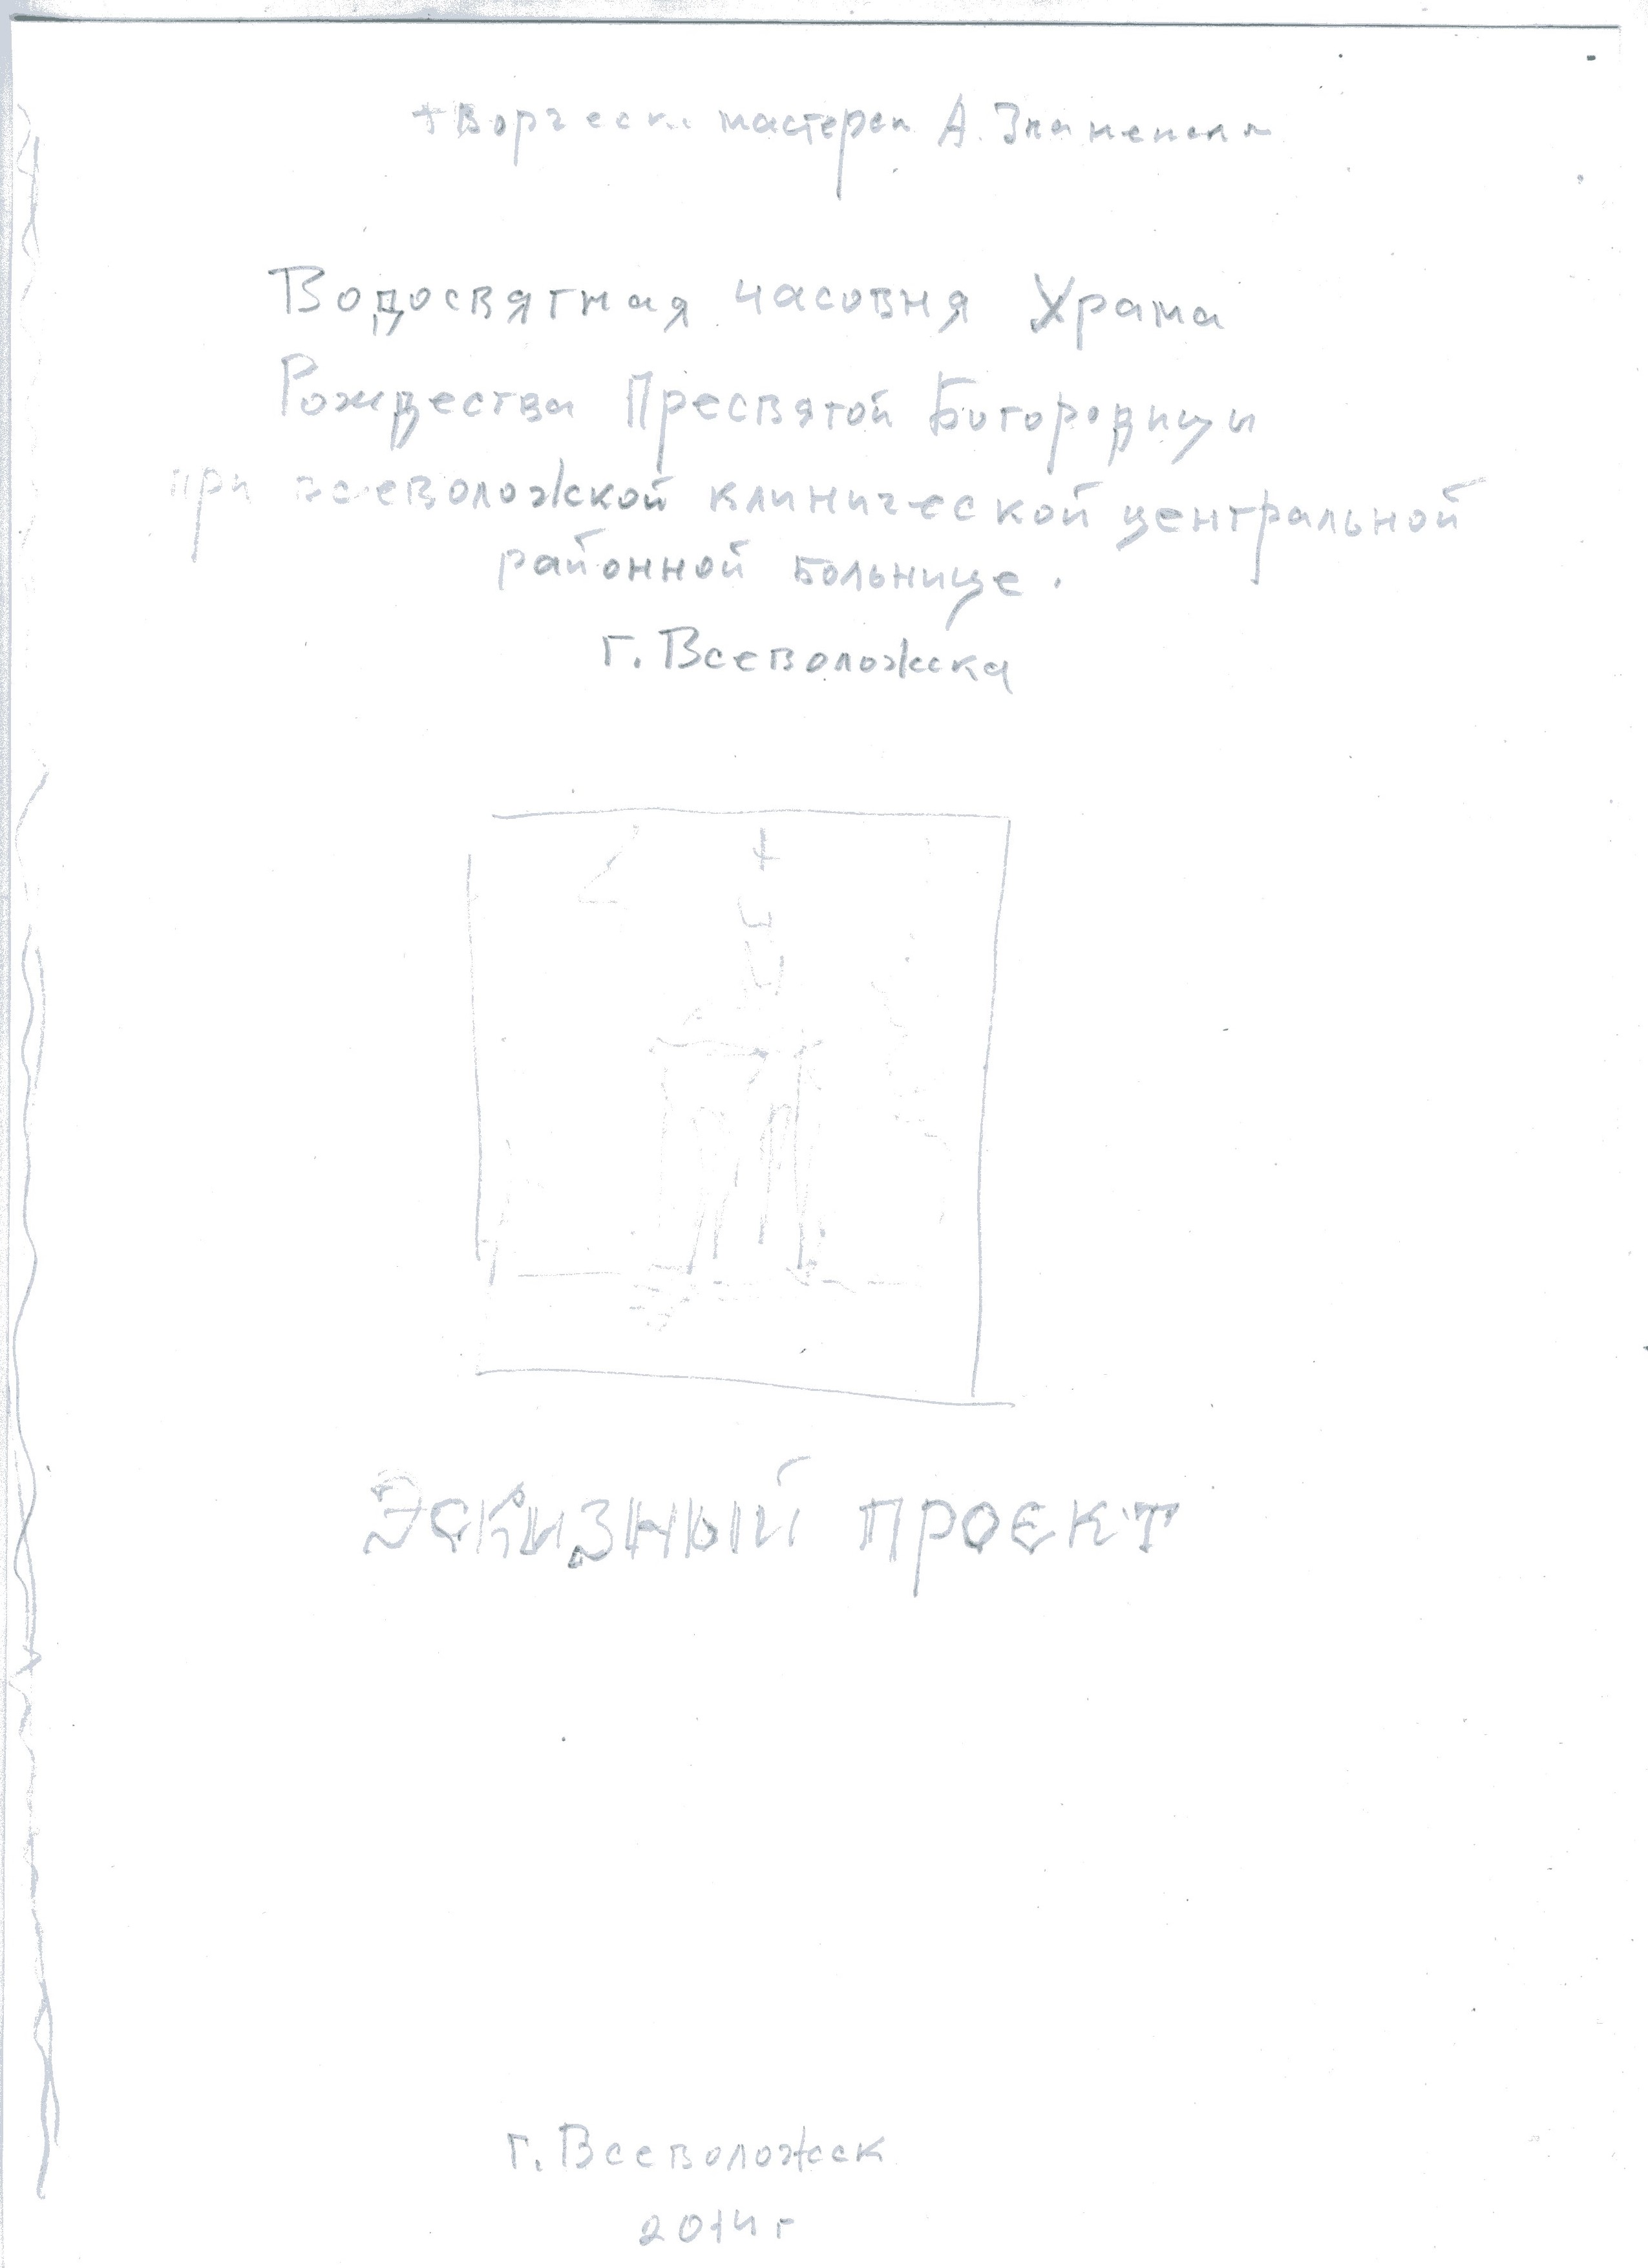 творческ мастерск А. Знаменск
Водосвятная часовня Храма
Рождества Пресвятой Богородицы
при всеволожской клинической центральной
районной больнице.
г. Всеволожска
Эскизный проект
г. Всеволожск
2014г